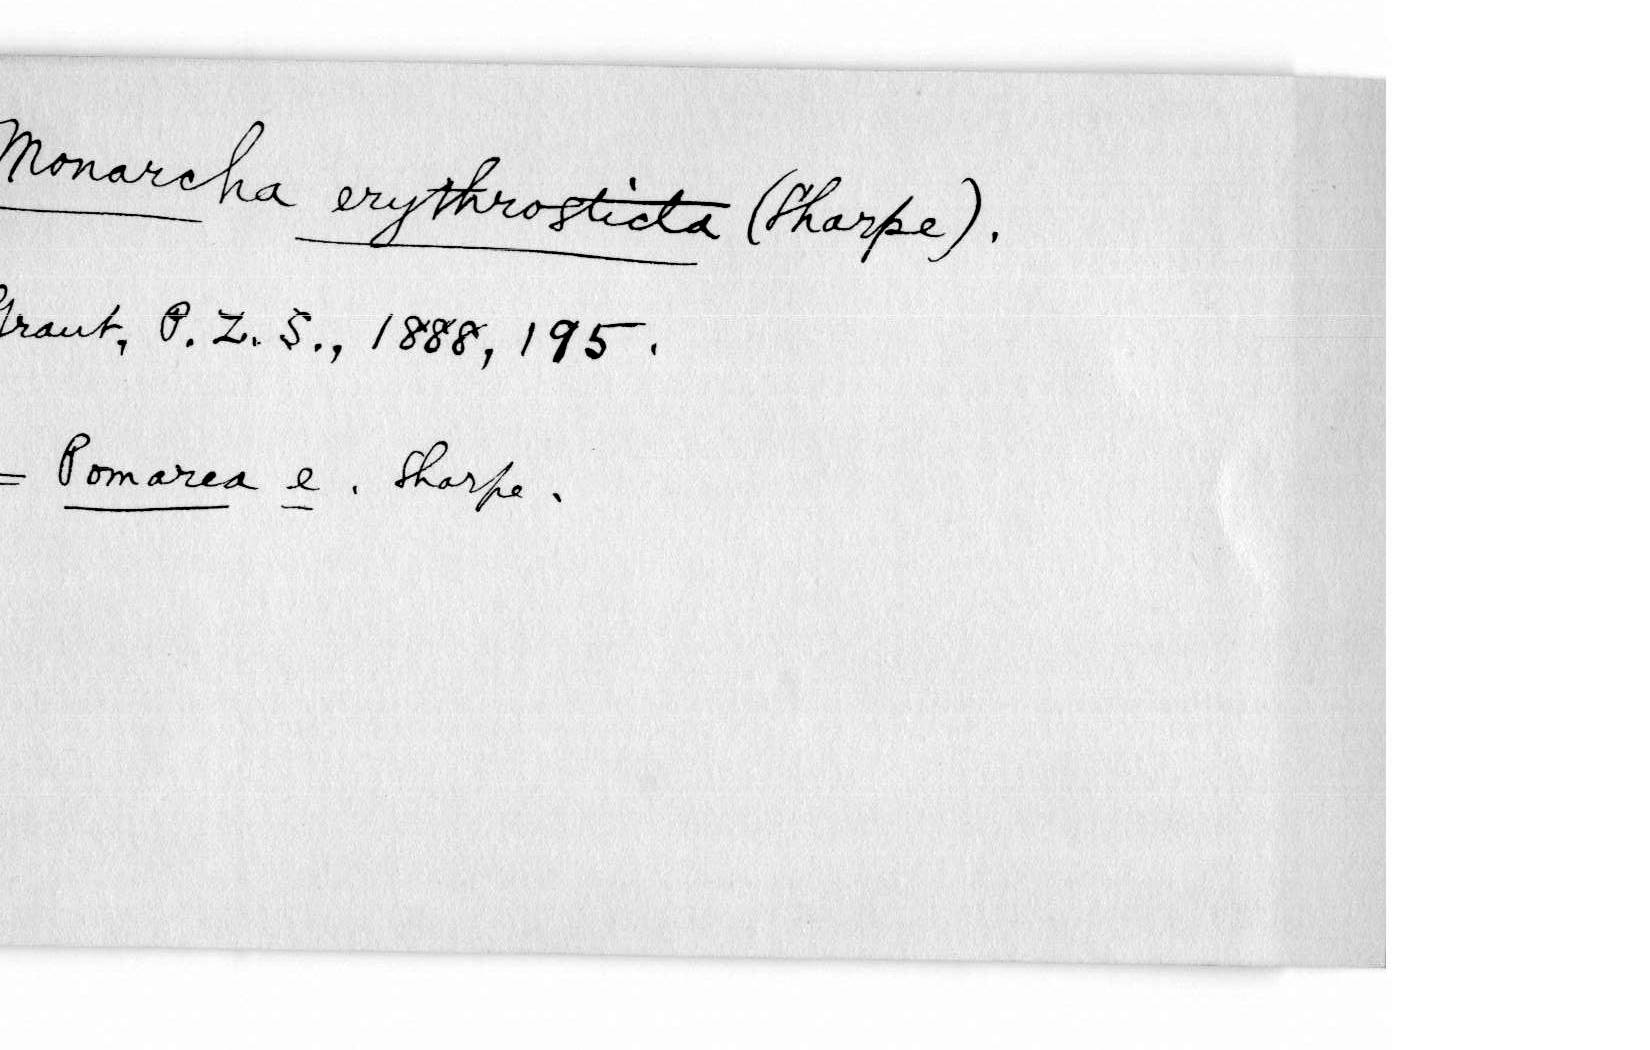 Monarcha erythrosticta (Sharpe).
Grant, P. Z. S., 1888, 195.
= Pomarea e. Sharpe.